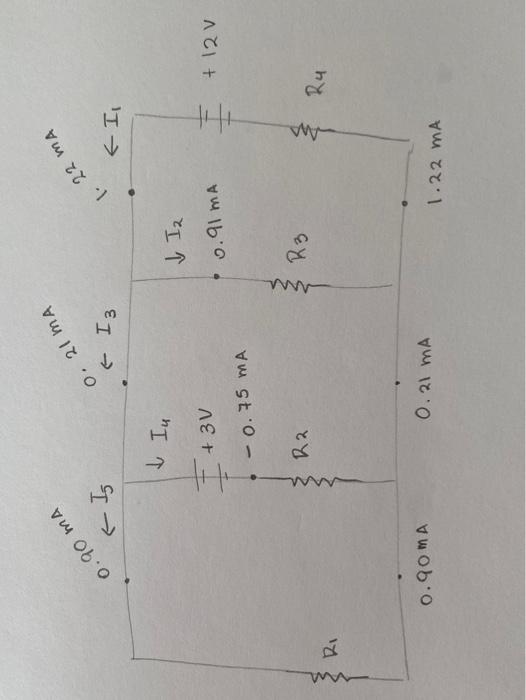 0.90 mA
← I5
0.21 mA
← I3
1.22 mA
← I1
↓ I4
+ 3V
- 0.75 mA
R2
↓ I2
0.91 mA
R3
+ 12V
R4
R1
0.90 mA
0.21 mA
1.22 mA